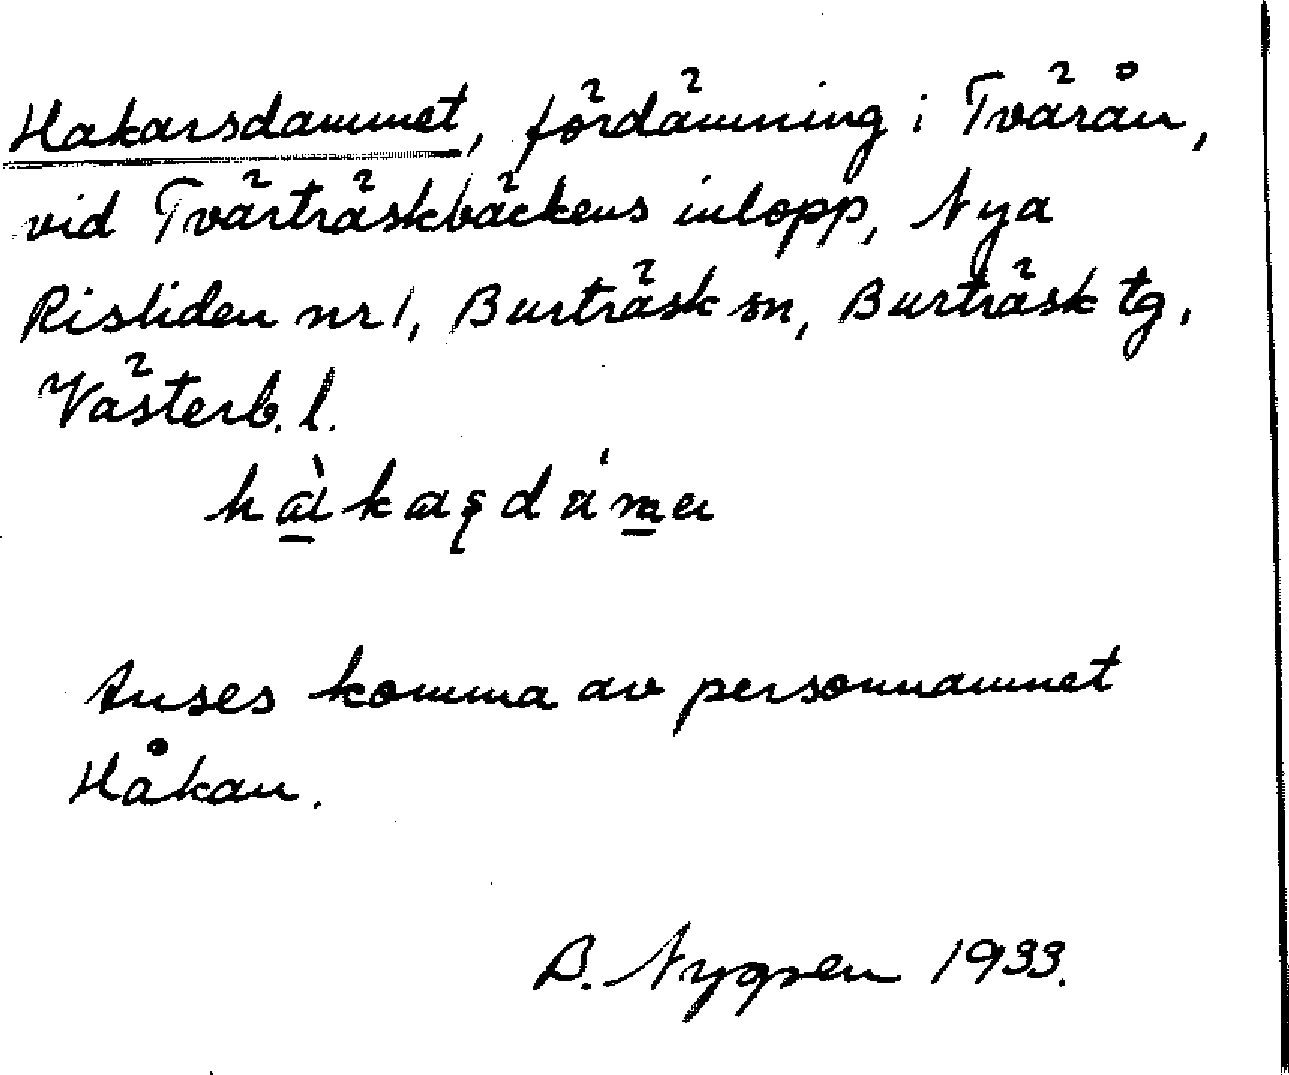 Hakarsdammet, fördämning i Tvärån,
vid Tvärträskbäckens inlopp, Nya
Risliden nr 1, Burträsk sn, Burträsk tg,
Västerb. l.
Anses komma av personnamnet
Håkan.
B. Nygren 1933.